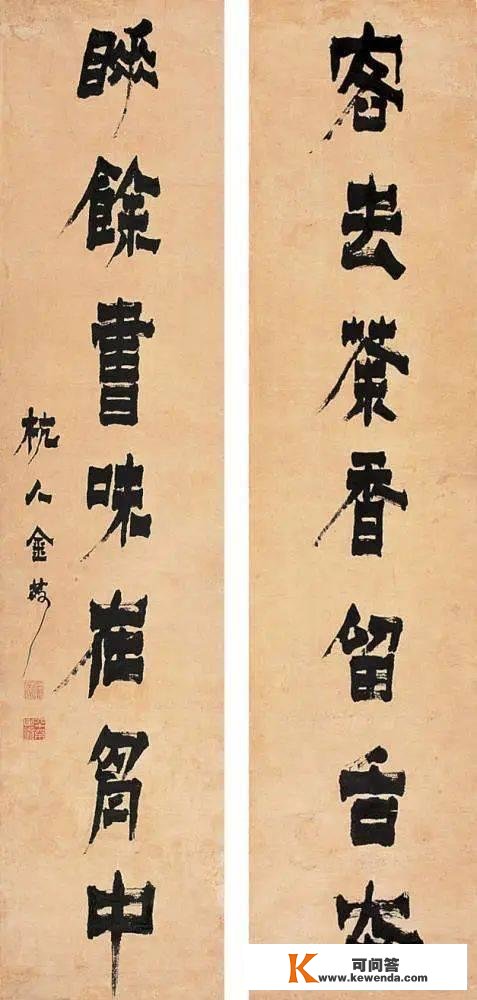 客去茶香留舌本
睡餘書味在胷中
杭人金農
可问答
www.kewenda.com